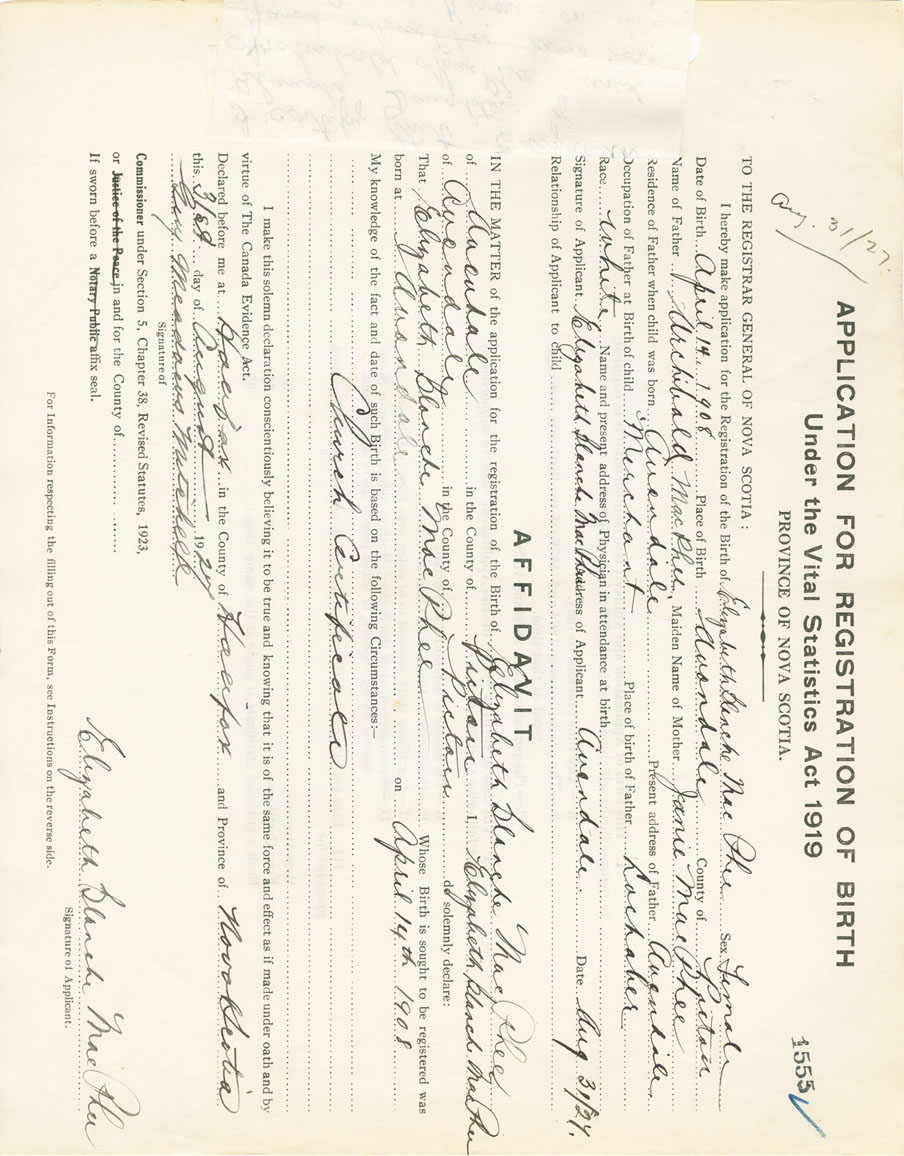 APPLICATION FOR REGISTRATION OF BIRTH
Under the Vital Statistics Act 1919
1555
PROVINCE OF NOVA SCOTIA.
Aug. 31/27.
TO THE REGISTRAR GENERAL OF NOVA SCOTIA:
I hereby make application for the Registration of the Birth of Elizabeth Blanche Mac Phee Sex Female
Date of Birth April 14, 1908 Place of Birth Avondale County of Pictou
Name of Father Archibald MacPhee, Maiden Name of Mother Janie MacPhee
Residence of Father when child was born Avondale Present address of Father Avondale
Occupation of Father at Birth of child Merchant Place of birth of Father Lochaber
Race White Name and present address of Physician in attendance at birth
Signature of Applicant Elizabeth Blanche MacPhee Address of Applicant Avondale Date Aug 31/27.
Relationship of Applicant to child
AFFIDAVIT
IN THE MATTER of the application for the registration of the Birth of Elizabeth Blanche MacPhee
of Avondale in the County of Pictou I, Elizabeth Blanch MacPhee
of Avondale in the County of Pictou do solemnly declare:
That Elizabeth Blanche MacPhee Whose Birth is sought to be registered was
born at Avondale on April 14th 1908
My knowledge of the fact and date of such Birth is based on the following Circumstances:—
Church Certificate
I make this solemn declaration conscientiously believing it to be true and knowing that it is of the same force and effect as if made under oath and by
virtue of The Canada Evidence Act.
Declared before me at Halifax in the County of Halifax and Province of Nova Scotia
this 31st day of August 1927
Meadows Mitchell
Signature of
Commissioner under Section 5, Chapter 38, Revised Statutes, 1923,
or Justice of the Peace in and for the County of
If sworn before a Notary Public affix seal.
Elizabeth Blanche MacPhee
Signature of Applicant.
For Information respecting the filling out of this Form, see Instructions on the reverse side.